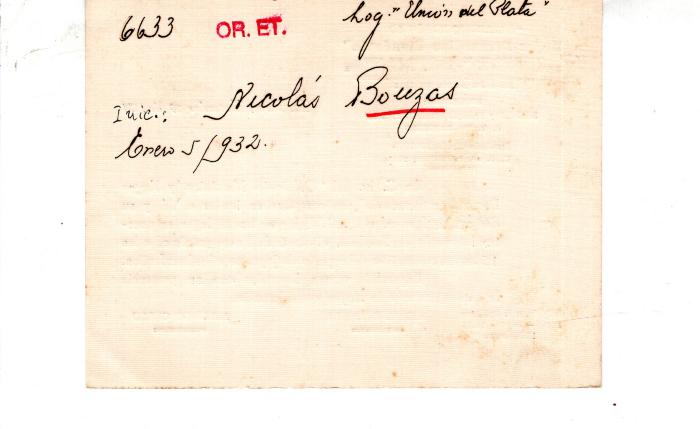 6633 OR. ET. Log. "Unión del Plata"
Nicolás Bouzas
Inic.:
Enero 5/932.